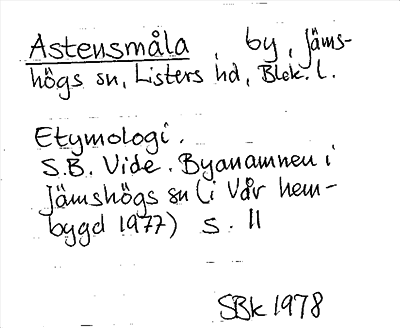 Astensmåla, by, Jäms-
högs sn, Listers hd, Blek. l.
Etymologi.
S.B. Vide. Byanamnen i
Jämshögs sn (i Vår hem-
bygd 1977) s. 11
SBk 1978